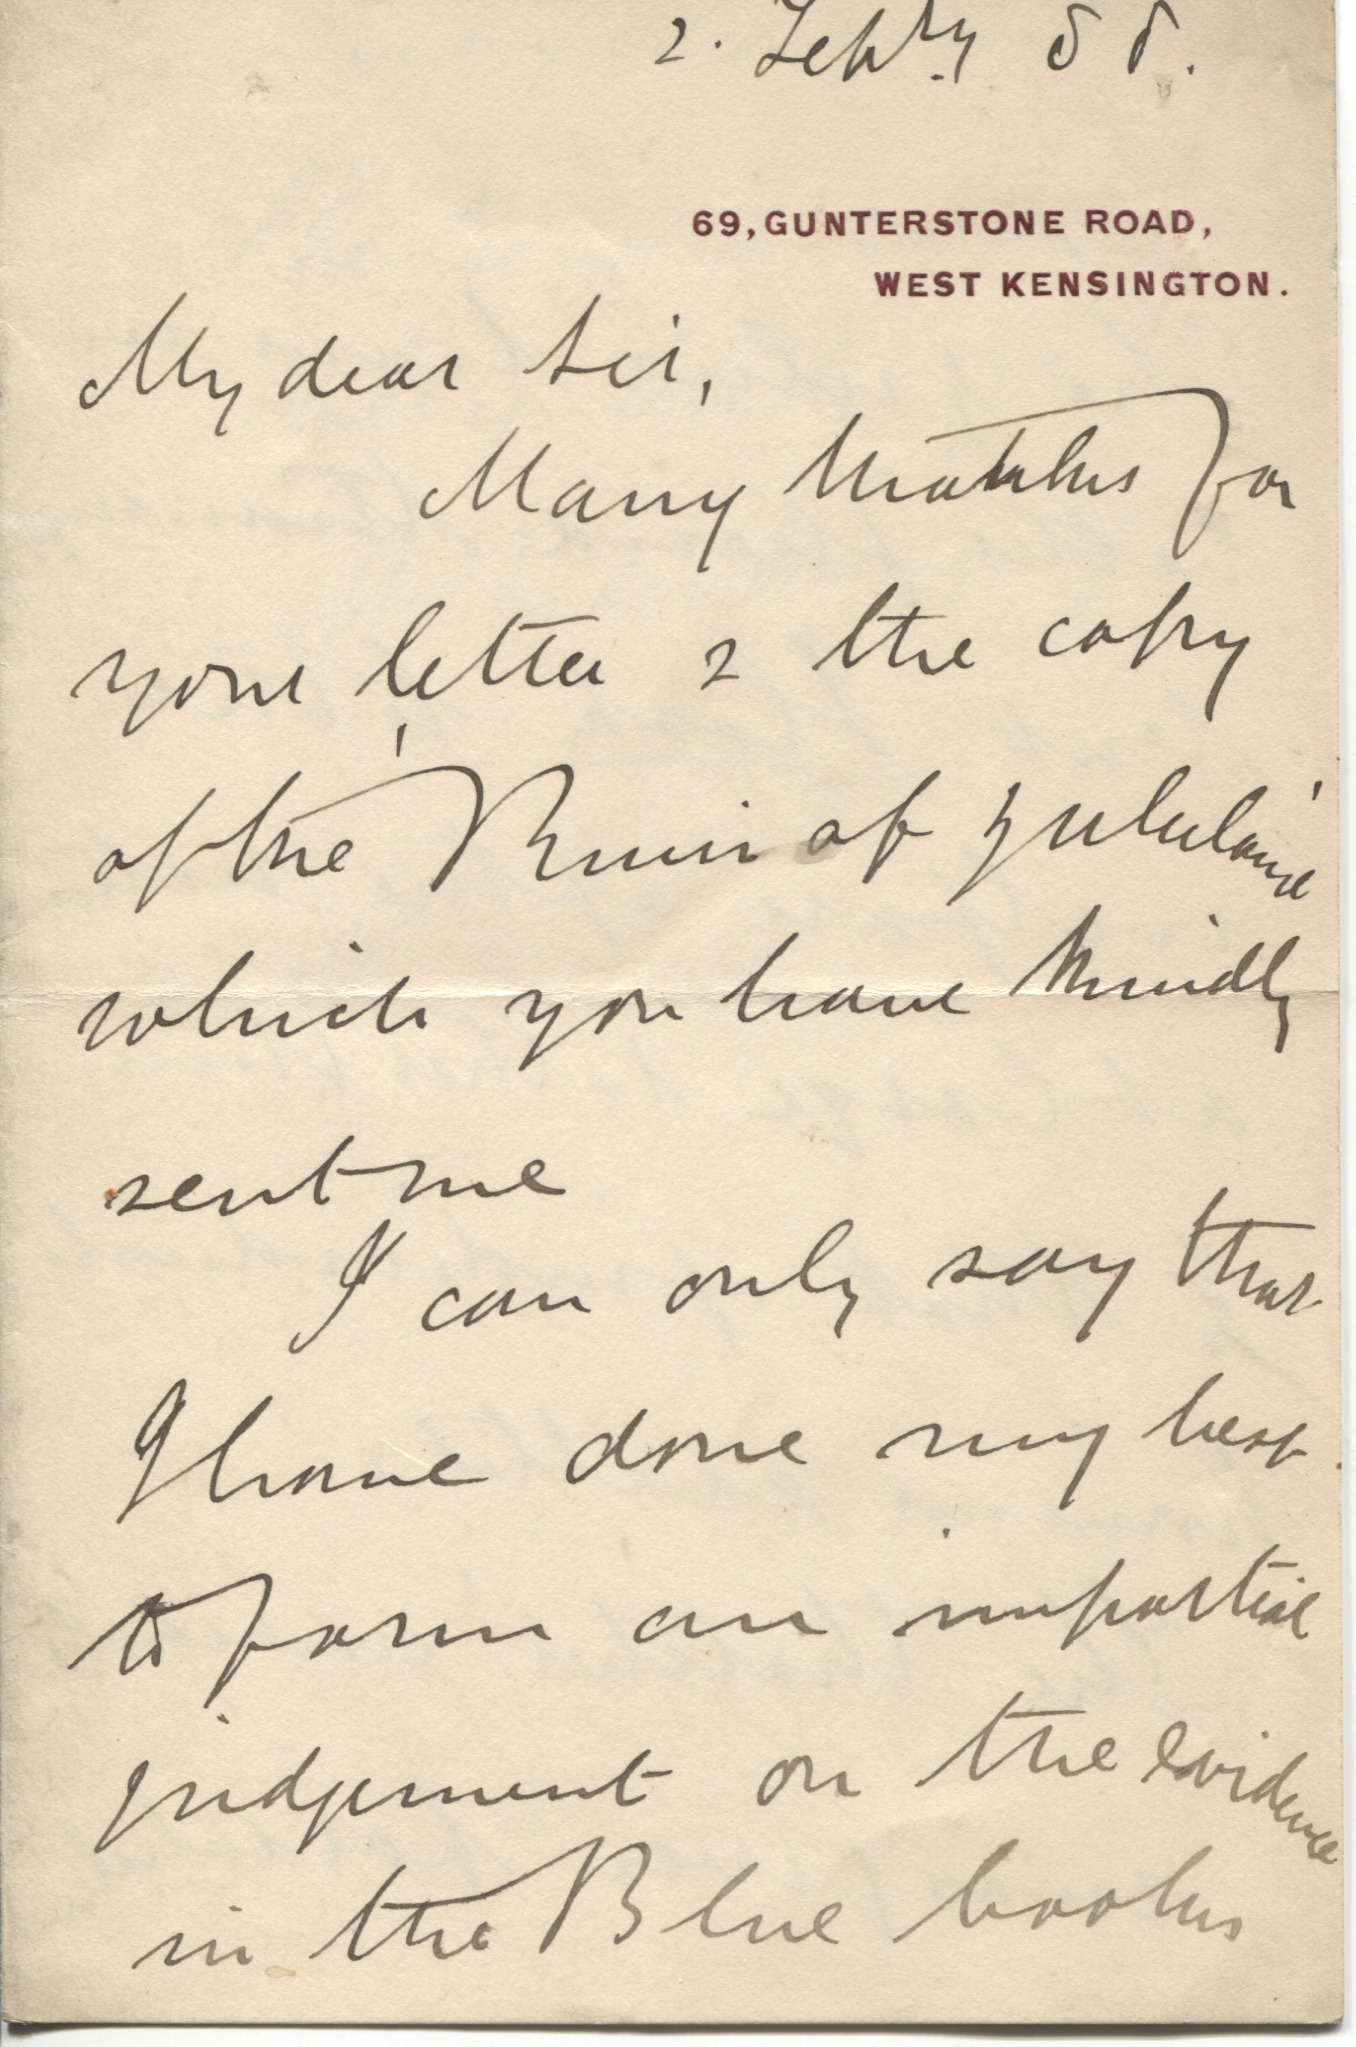 2. Feby 88.
69, GUNTERSTONE ROAD,
WEST KENSINGTON.
My dear Sir,
Many thanks for
your letter & the copy
of the Ruin of Zululand
which you have kindly
sent me
I can only say that
I have done my best
to form an impartial
judgement on the evidence
in the Blue books